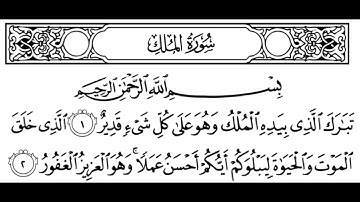 سُورَةُ المُلْكِ
بِسْمِ ٱللَّهِ ٱلرَّحْمَٰنِ ٱلرَّحِيمِ
تَبَٰرَكَ ٱلَّذِى بِيَدِهِ ٱلْمُلْكُ وَهُوَ عَلَىٰ كُلِّ شَىْءٍ قَدِيرٌ ١ ٱلَّذِى خَلَقَ
ٱلْمَوْتَ وَٱلْحَيَوٰةَ لِيَبْلُوَكُمْ أَيُّكُمْ أَحْسَنُ عَمَلًا ۚ وَهُوَ ٱلْعَزِيزُ ٱلْغَفُورُ ٢